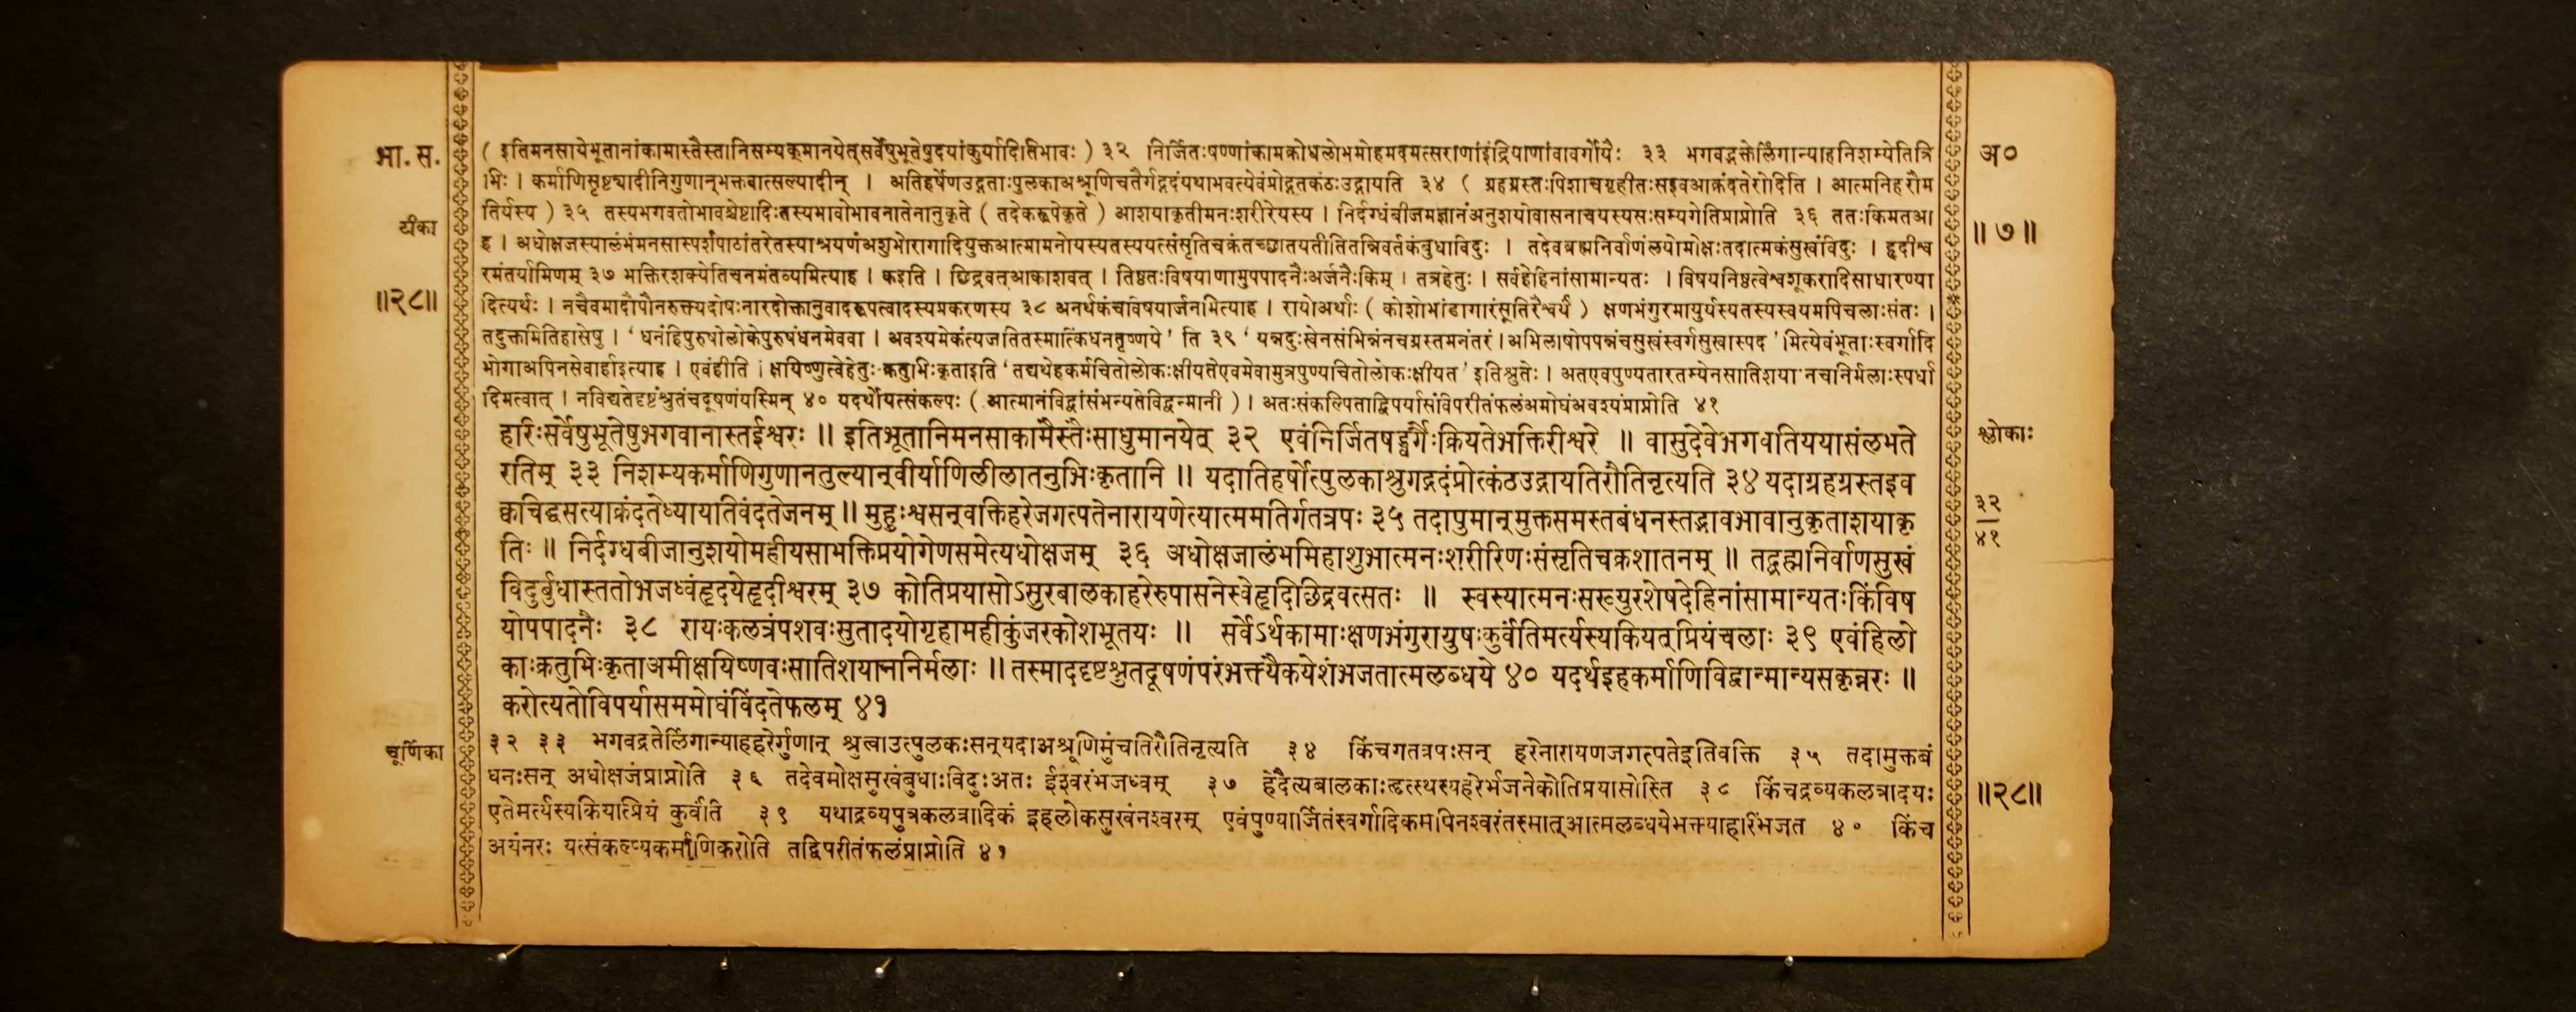 भा. स.
टीका
॥२८॥
चूर्णिका
(इतिमनसायेभूतानांकामास्तैस्तानिसम्यक्मानयेत्सर्वेषुभूतेषुदयांकुर्यादितिभावः) ३२ निर्जितःषण्णांकामक्रोधलोभमोहमदमत्सराणांइंद्रियाणांवावर्गोयैः ३३ भगवद्भक्तेर्लिंगान्याहनिशम्येतित्रि
भिः । कर्माणिसृष्ट्यादीनिगुणान्भक्तवात्सल्यादीन् । अतिहर्षेणउद्गताःपुलकाअश्रूणिचतैर्गद्गदंयथाभवत्येवंप्रोद्गतकंठःउद्गायति ३४ (ग्रहग्रस्तःपिशाचगृहीतःसइवआक्रंदतेरोदिति । आत्मनिहरौम
तिर्यस्य) ३५ तस्यभगवतोभावश्चेष्टादिःतस्यभावोभावनातेनानुकृते (तदेकरूपेकृते) आशयाकृतीमनःशरीरेयस्य । निर्दग्धंबीजमज्ञानंअनुशयोवासनाचयस्यसःसम्यगेतिप्राप्नोति ३६ ततःकिमतआ
ह । अधोक्षजस्यालंभंमनसास्पर्शंपाठांतरेतस्याश्रयणंअशुभोरागादियुक्तआत्मामनोयस्यतस्ययत्संसृतिचक्रंतच्छातयतीतितन्निवर्तकंबुधाविदुः । तदेवब्रह्मनिर्वाणंलयोमोक्षःतदात्मकंसुखंविदुः । हृदीश्व
रमंतर्यामिणम् ३७ भक्तिरशक्येतिचनमंतव्यमित्याह । कइति । छिद्रवत्आकाशवत् । तिष्ठतःविषयाणामुपपादनैःअर्जनैःकिम् । तत्रहेतुः । सर्वदेहिनांसामान्यतः । विषयनिष्ठत्वेश्वशूकरादिसाधारण्या
दित्यर्थः । नचैवमादौपौनरुक्त्यदोषःनारदोक्तानुवादरूपत्वादस्यप्रकरणस्य ३८ अनर्थकंचविषयार्जनमित्याह । रायोअर्थाः (कोशोभांडागारंभूतिरैश्वर्यं) क्षणभंगुरमायुर्यस्यतस्यस्वयमपिचलाःसंतः ।
तदुक्तमितिहासेषु । ‘धनंहिपुरुषोलोकेपुरुषंधनमेववा । अवश्यमेकंत्यजतितस्मात्किंधनतृष्णये’ति ३९ ‘यन्नदुःखेनसंभिन्नंनचग्रस्तमनंतरं । अभिलाषोपपन्नंचसुखंस्वर्गसुखास्पद’मित्येवंभूताःस्वर्गादि
भोगाअपिनसेवार्हाइत्याह । एवंहीति । क्षयिष्णुत्वेहेतुःक्रतुभिःकृताइति ‘तद्यथेहकर्मचितोलोकःक्षीयतेएवमेवामुत्रपुण्यचितोलोकःक्षीयत’ इतिश्रुतेः । अतएवपुण्यतारतम्येनसातिशयानचनिर्मलाःस्पर्धा
दिमत्वात् । नविद्यतेदृष्टंश्रुतंचदूषणंयस्मिन् ४० यदर्थोयत्संकल्पः (आत्मानंविद्वांसंमन्यतेविद्वन्मानी) । अतःसंकल्पिताद्विपर्यासंविपरीतंफलंअमोघंअवश्यंप्राप्नोति ४१
हरिःसर्वेषुभूतेषुभगवानास्तईश्वरः ॥ इतिभूतानिमनसाकामैस्तैःसाधुमानयेत् ३२ एवंनिर्जितषड्वर्गैःक्रियतेभक्तिरीश्वरे ॥ वासुदेवेभगवतिययासंलभते
रतिम् ३३ निशम्यकर्माणिगुणानतुल्यान्वीर्याणिलीलातनुभिःकृतानि ॥ यदातिहर्षोत्पुलकाश्रुगद्गदंप्रोत्कंठउद्गायतिरौतिनृत्यति ३४ यदाग्रहग्रस्तइव
क्वचिद्धसत्याक्रंदतेध्यायतिवंदतेजनम् ॥ मुहुःश्वसन्वक्तिहरेजगत्पतेनारायणेत्यात्ममतिर्गतत्रपः ३५ तदापुमान्मुक्तसमस्तबंधनस्तद्भावभावानुकृताशयाकृ
तिः ॥ निर्दग्धबीजानुशयोमहीयसाभक्तिप्रयोगेणसमेत्यधोक्षजम् ३६ अधोक्षजालंभमिहाशुभात्मनःशरीरिणःसंसृतिचक्रशातनम् ॥ तद्ब्रह्मनिर्वाणसुखं
विदुर्बुधास्ततोभजध्वंहृदयेहृदीश्वरम् ३७ कोतिप्रयासोऽसुरबालकाहरेरुपासनेस्वेहृदिछिद्रवत्सतः ॥ स्वस्यात्मनःसख्युरशेषदेहिनांसामान्यतःकिंविष
योपपादनैः ३८ रायःकलत्रंपशवःसुतादयोगृहामहीकुंजरकोशभूतयः ॥ सर्वेऽर्थकामाःक्षणभंगुरायुषःकुर्वंतिमर्त्यस्यकियत्प्रियंचलाः ३९ एवंहिलो
काःक्रतुभिःकृताअमीक्षयिष्णवःसातिशयाननिर्मलाः ॥ तस्माददृष्टश्रुतदूषणंपरंभक्त्यैकयेशंभजतात्मलब्धये ४० यदर्थइहकर्माणिविद्वान्मान्यसकृन्नरः ॥
करोत्यतोविपर्यासममोघंविंदतेफलम् ४१
३२ ३३ भगवद्रतेर्लिंगान्याहहरेर्गुणान् श्रुत्वाउत्पुलकःसन्यदाअश्रूणिमुंचतिरौतिनृत्यति ३४ किंचगतत्रपःसन् हरेनारायणजगत्पतेइतिवक्ति ३५ तदामुक्तबं
धनःसन् अधोक्षजंप्राप्नोति ३६ तदेवमोक्षसुखंबुधाःविदुःअतः ईश्वरंभजध्वम् ३७ हेदैत्यबालकाःहृत्स्थस्यहरेर्भजनेकोतिप्रयासोस्ति ३८ किंचद्रव्यकलत्रादयः
एतेमर्त्यस्यकियत्प्रियं कुर्वंति ३९ यथाद्रव्यपुत्रकलत्रादिकं इहलोकसुखंनश्वरम् एवंपुण्यार्जितंस्वर्गादिकमपिनश्वरंतस्मात्आत्मलब्धयेभक्त्याहरिंभजत ४० किंच
अयंनरः यत्संकल्प्यकर्माणिकरोति तद्विपरीतंफलंप्राप्नोति ४१
अ०
॥७॥
श्लोकाः
३२
४१
॥२८॥